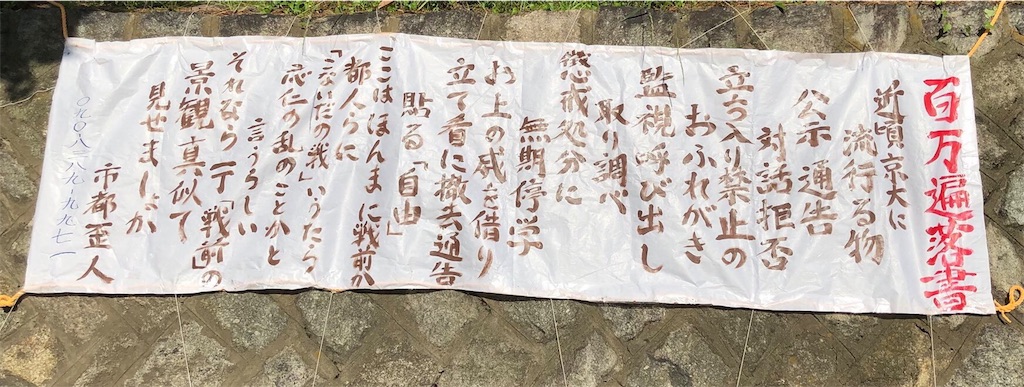 百万遍落書
近頃京大に
流行る物
公示 通告
対話拒否
立ち入り禁止の
おふれがき
監視呼び出し
取り調べ
懲戒処分に
無期停学
お上の威を借り
立て看に撤去通告
貼る「自由」
ここはほんまに戦前か
都人らに
「こないだの戦」いうたら
応仁の乱のことかと
言うらしい
それなら一丁「戦前」の
景観真似て
見せましょか
市都歪人